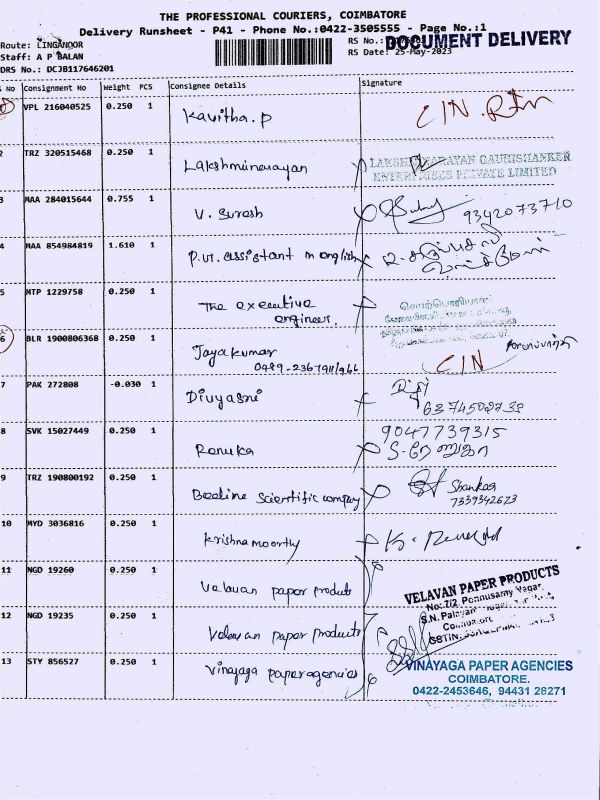 THE PROFESSIONAL COURIERS, COIMBATORE
Delivery Runsheet - P41 - Phone No.:0422-3505555 - Page No.:1
Route: LINGANOOR
Staff: A P BALAN
DRS No.: DCJB117646201
RS No.:
DOCUMENT DELIVERY
RS Date: 25-May-2023
S No Consignment No Weight PCS Consignee Details Signature
VPL 216040525 0.250 1 Kavitha.p CIN
2 TRZ 320515468 0.250 1 Lakshminarayan LAKSHMINARAYAN GAURISHANKER
ENTERPRISES PRIVATE LIMITED
3 MAA 284015644 0.755 1 V. Suresh 9342073710
4 MAA 854984819 1.610 1 P.ut. assistant in english
5 MTP 1229758 0.250 1 The executive
engineer.
6 BLR 1900806368 0.250 1 Jayakumar CIN
7 PAK 272808 -0.030 1 Divyasni
8 SVK 15027449 0.250 1 Renuka 9047739315
S. ரேணுகா
9 TRZ 190800192 0.250 1 Beeline scientific company Shankar
7339342623
10 MYD 3036816 0.250 1 Krishnamoorthy
11 NGD 19260 0.250 1 Velavan paper products VELAVAN PAPER PRODUCTS
No: 7/2, Ponnusamy Nagar,
12 NGD 19235 0.250 1 Velavan paper products
13 STY 856527 0.250 1 Vinayaga paper agencies VINAYAGA PAPER AGENCIES
COIMBATORE.
0422-2453646, 94431 28271